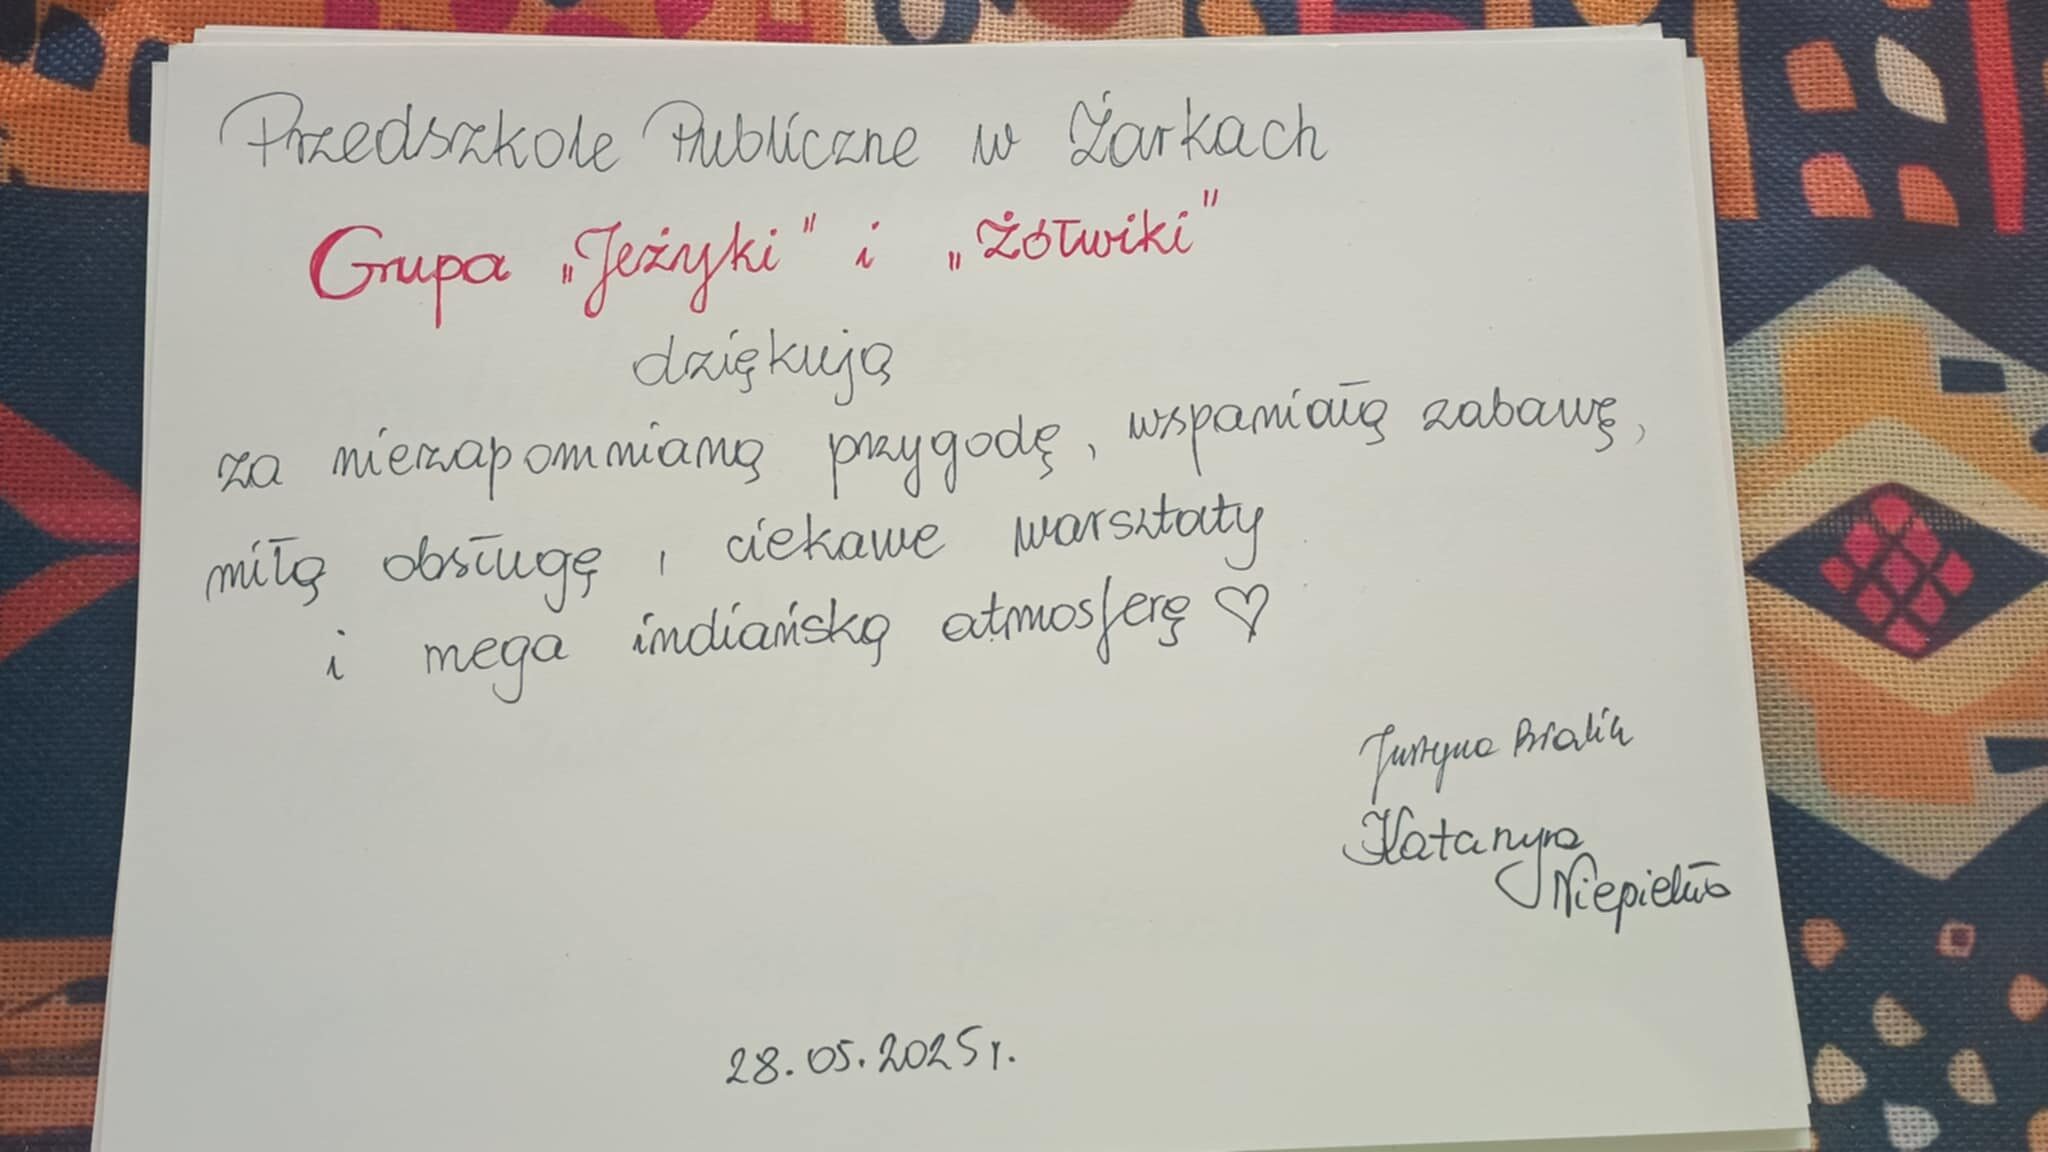 Przedszkole Publiczne w Żarkach
Grupa „Jeżyki" i „Żółwiki"
dziękują
za niezapomnianą przygodę, wspaniałą zabawę,
miłą obsługę, ciekawe warsztaty
i mega indiańską atmosferę ♡
Justyna
Katarzyna
28.05.2025 r.